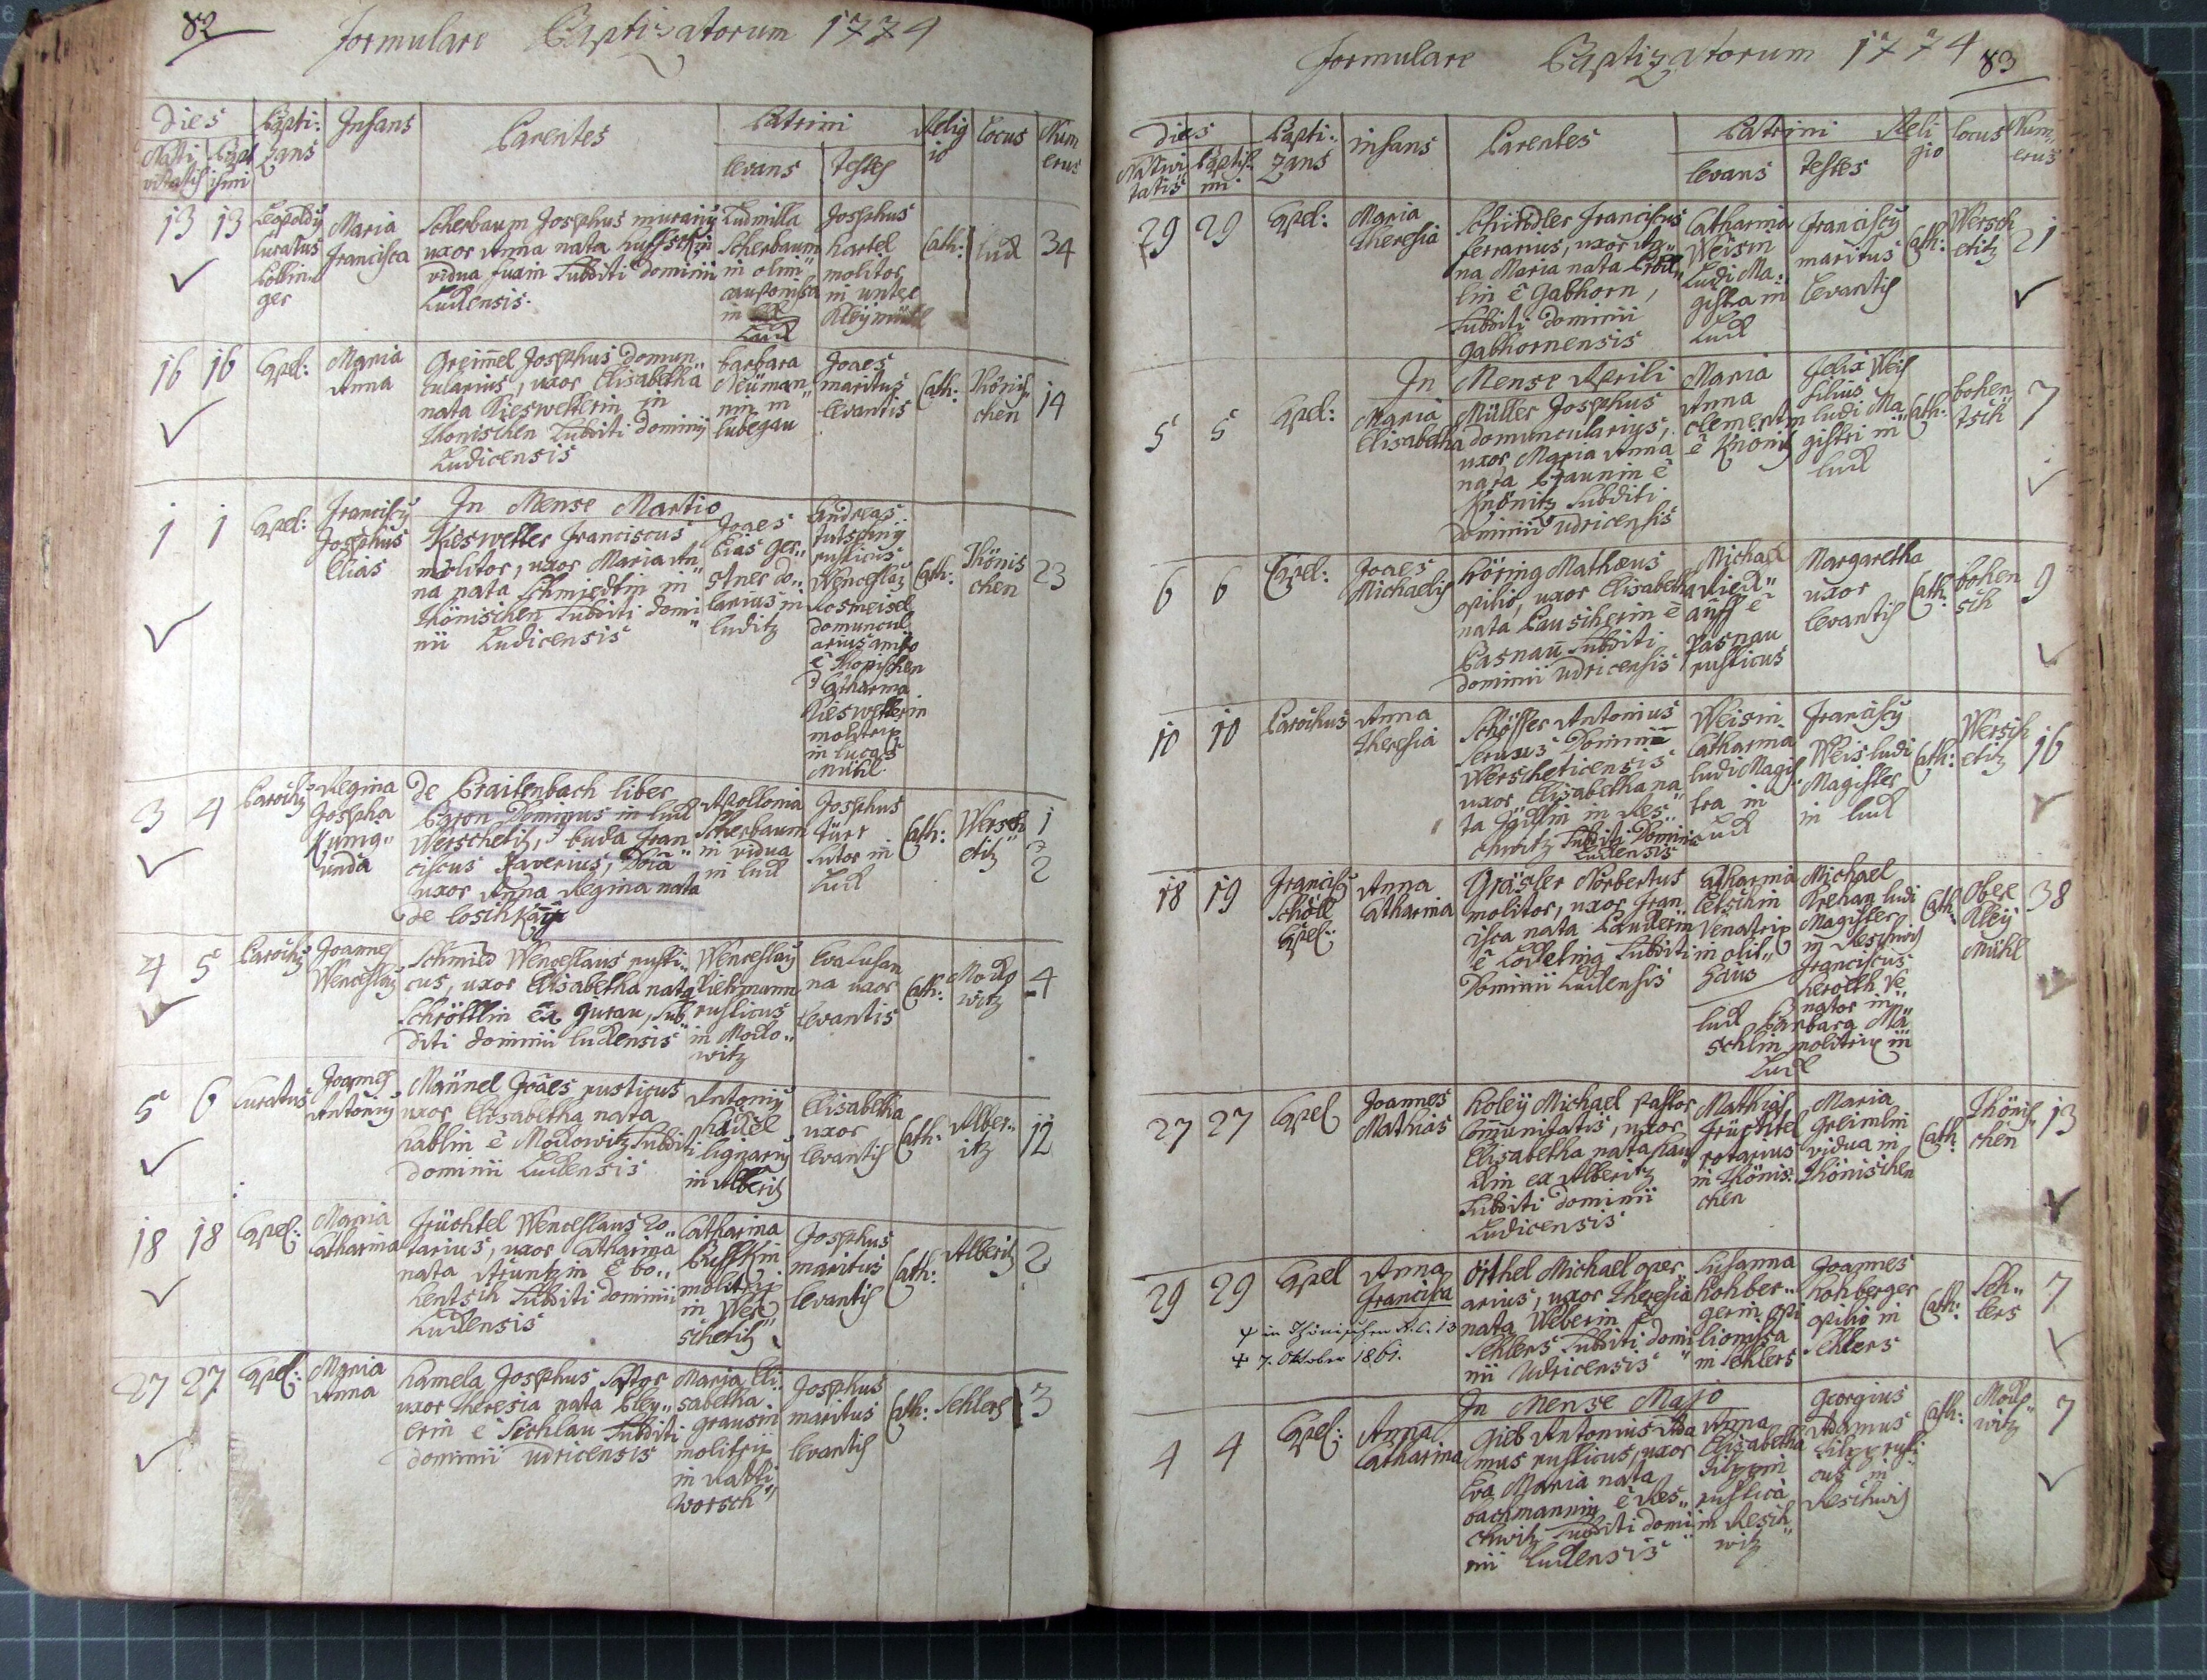 82
formulare Baptizatorum 1774
Dies
Nati
vitatis
Bapt
ismi
Bapti:
zans
Infans
Parentes
Patrini
levans
testes
Relig
io
Locus
Num
erus
13 13
Leopoldy
Curatus
ger
Maria
Francisca
Scherbaum Josephus
uxor Anna nata
vidua Subditi dominii
Ludensis.
Ludmilla
Scherbaum
in olim
in
Lud
Josephus
Hartel
molitor
in unter
Kleymühl
Cath:
Lud
34
16 16
Cpel:
Maria
Anna
Greimel Josephus domun
cularius, uxor Elisabetha
nata Kieswetterin in
Thonischen Subditi dominij
Ludicensis
barbara
Neuman
nin in
lubegau
Joaes
maritus
levantis
Cath:
Thönis
chen
14
In Mense Martio
1 1
Cpel:
Franciscy
Josephus
Elias
Kieswetter Franciscus
molitor, uxor Maria An
na nata Schmiedtin in
Thönischen Subditi domi
nii Ludicensis
Joaes
Elias Ger
stner do
larius in
luditz
Andreas
rusticus
Wenceslay
Kosmeisel
domuncul
arius ambo
e Thonischen
Catharina
Kieswetterin
molitrix
in Lucas
Mühl
Cath:
Thönis
chen
23
3 4
Parochy
Regina
Josepha
Kunig
unda
De Braitenbach liber
Baron Dominus in lud
Werschetitz, buda Fran
ciscus Xaverius, Doia
uxor Anna Regina nata
de
Apollonia
Scherbaum
in vidua
in lud
Josephus
Türt
sutor in
Lud
Cath:
Wersch
etitz
1
2
4 5
Parochy
Joannes
Wenceslay
Schmied Wenceslaus rusti
cus, uxor Elisabetha nata
Schröttlin ex Jurau, sub
diti dominii ludensis
Wenceslay
Liehmann
rusticus
in Moko
witz
Eva Susan
na uxor
levantis
Cath:
Moko
witz
4
5 6
Curatus
Joannes
Antonius
Männel Joaes rusticus
uxor Elisabetha nata
Hablin e Mokowitz Subditi
dominii Ludensis
Antoniy
Hackel
lignariy
in Alberitz
Elisabetha
uxor
levantis
Cath:
Alber
itz
12
18 18
Cpel:
Maria
Catharina
Früchtel Wenceslaus ro
tarius, uxor Catharina
nata e bo
hentsch Subditi dominii
Ludensis
Catharina
molitrix
in Wer
schetitz
Josephus
maritus
levantis
Cath:
Alberitz
2
27 27
Cpel:
Maria
Anna
Hamela Josephus Pastor
uxor Theresia nata Bley
erin e Sichlau Subditi
dominii udricensis
Maria Eli
sabetha
grausin
molitrix
in Ratti
worsch
Josephus
maritus
levantis
Cath:
Sehlers
3
formulare Baptizatorum 1774
83
Dies
Nativi
tatis
Baptis
mi
Bapti:
zans
infans
Parentes
Patrini
levans
testes
Reli
gio
locus
Num
erus
29 29
Cpel:
Maria
Theresia
Schindler Franciscus
ferrarius, uxor An
na Maria nata
lin e Gabhorn,
Subditi dominii
Gabhornensis
Catharina
Weisin
Ludi Ma
gistra in
Lud
Franciscy
maritus
levantis
Cath:
Wersch
etitz
21
In Mense Aprili
5 5
Cpel:
Maria
Elisabetha
Müller Josephus
domuncularius,
uxor Maria Anna
nata Braunin e
Knönitz Subditi
dominii udricensis
Maria
Anna
clementin
e Knönitz
Felix Weis
filius
ludi Ma
gistri in
lud
Cath:
bohen
tsch
7
6 6
Cpel:
Joaes
Michaelis
Höring Mathæus
opilio, uxor Elisabetha
nata Lauscherin e
Pasnau Subditi
dominii udricensis
Michael
Ried
auff e
Pasnau
rusticus
Margaretha
uxor
levantis
Cath:
bohen
sch
9
10 10
Parochus
Anna
Theresia
Schöffer Antonius
servus Dominii
Werscheticensis
uxor Elisabetha na
ta in Res
chwitz Subditi Dominii
Ludensis
Weisin
Catharina
ludi Magis
tra in
Lud
Franciscy
Weis ludi
Magister
in lud
Cath:
Wersch
etitz
16
18 19
Franciscy
Schöll
Cpel:
Anna
Catharina
Gräsler Norbertus
molitor, uxor Fran
cisca nata Bauderin
e Subditi
Dominii Ludensis
Catharina
Letschin
Venatrix
in olit
Haus
Michael
Kreham ludi
Magister
in Reschwitz
Franciscus
Heroldt Ve
nator in
lud Barbara Mä
schlin molitrix in
Lud
Cath:
Ober
Kley
Mühl
38
27 27
Cpel
Joannes
Mathias
Holey Michael Pastor
Communitatis, uxor
Elisabetha nata Hau
lin ex Alberitz
Subditi dominii
Ludicensis
Mathias
Früchtel
rotarius
in Thönis
chen
Maria
Greimlin
vidua in
Thönischen
Cath
Thönis
chen
13
29 29
Cpel
Anna
Francisca
† in Thönischen N.C. 13
† 7. Oktober 1861.
Örthel Michael oper
arius, uxor Theresia
nata Weberin e
Sehlers Subditi domi
nii Udricensis
Susanna
Hohber
gerin opi
lionissa
in Sehlers
Joannes
Hohberger
opilio in
Sehlers
Cath:
Seh
lers
7
In Mense Majo
4 4
Cpel:
Anna
Catharina
Gieb Antonius Ada
mus rusticus, uxor
Eva Maria nata
bachmannin e Res
chwitz Subditi domi
nii Ludensis
Anna
Elisabetha
rustica
in Resch
witz
Georgius
Adamus
rusti
cus in
Reschwitz
Cath:
Moko
witz
7